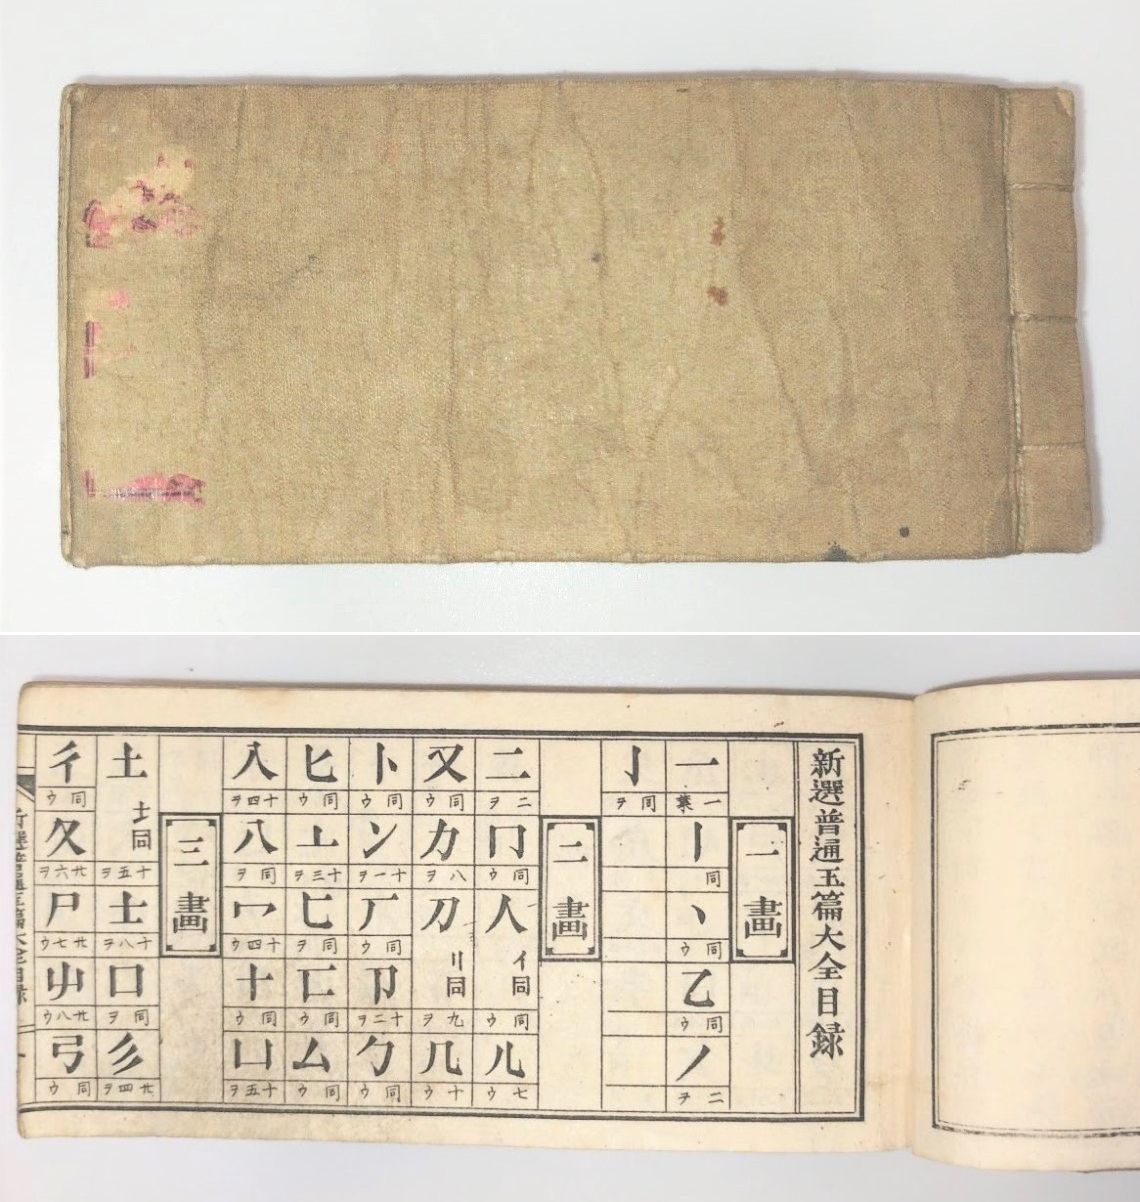 新選普通玉篇大全目録
一畫
一 一葉 丨 同 丶 同ウ 乙 同ウ ノ 二ヲ
亅 同ヲ
二畫
二 二ヲ 冂 同ウ 人 亻同 同ウ 儿 七ウ
又 同ウ 力 八ヲ 刀 刂同 九ヲ 几 十ウ
卜 同ウ 冫 十一ヲ 厂 同ウ 卩 十二ヲ 勹 同ウ
匕 同ウ 亠 十三ヲ 匸 同ヲ 匚 同ウ 厶 同ウ
入 十四ヲ 八 同ヲ 冖 十四ウ 十 同ウ 凵 十五ヲ
三畫
土 士同 十五ヲ 士 十八ヲ 口 同ヲ 彡 廿四ヲ
彳 同ウ 夂 廿六ヲ 尸 廿七ウ 屮 廿八ウ 弓 同ウ